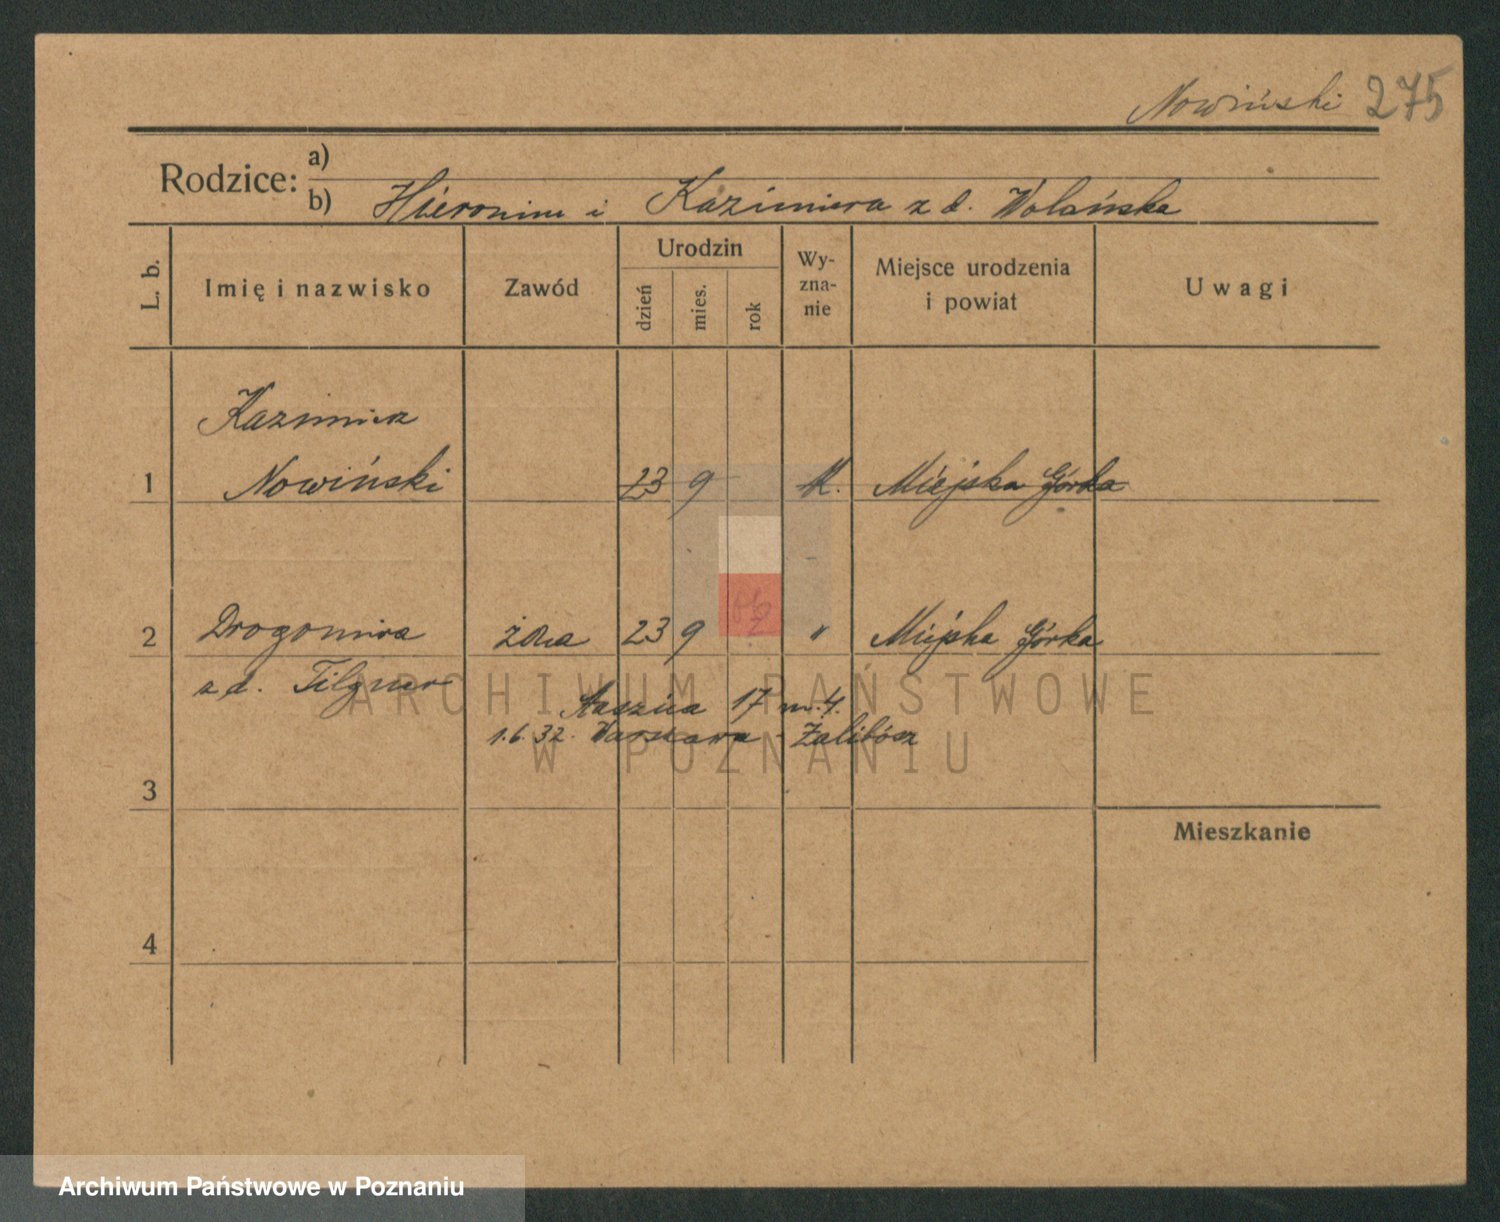 Nowiński 275
Rodzice:
a)
b) Hieronim i Kazimiera z d. Wolańska
L. b.
Imię i nazwisko
Zawód
Urodzin
dzień
mies.
rok
Wy-
zna-
nie
Miejsce urodzenia
i powiat
Uwagi
Kazimierz
1 Nowiński 23 9 Miejska Górka
2 Drogomira żona 23 9 " Miejska Górka
z d. Tilgner
17 m. 4.
1.6.32. Warszawa - Żolibósz
3
Mieszkanie
4
ARCHIWUM PAŃSTWOWE
W POZNANIU
Archiwum Państwowe w Poznaniu